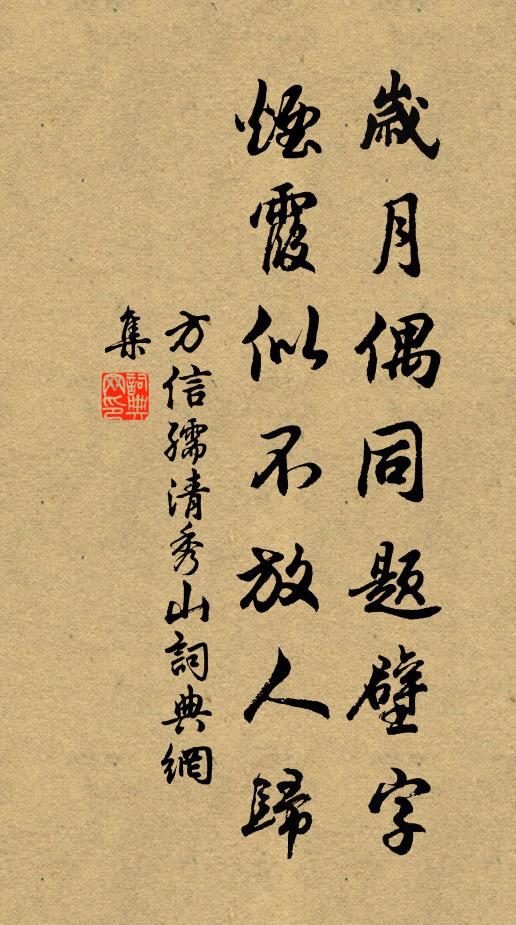 歲月偶同題壁字
煙霞似不放人歸
方信孺清秀山詞典網
集
詞典網印